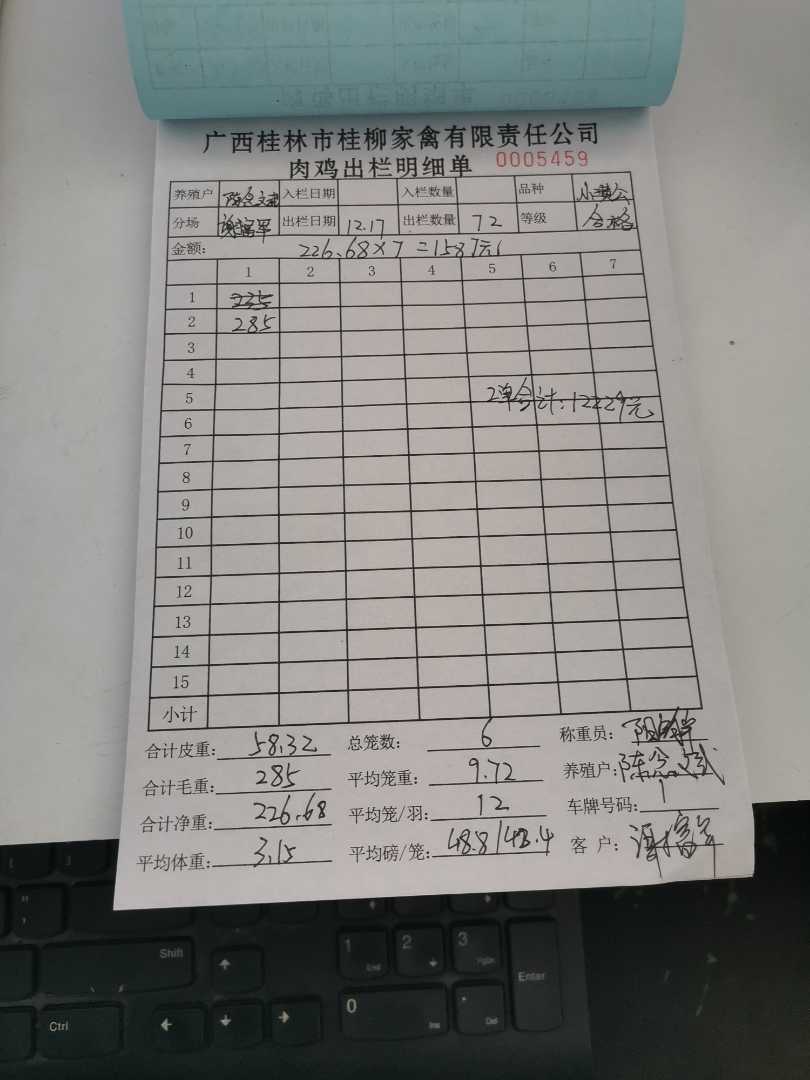 广西桂林市桂柳家禽有限责任公司
肉鸡出栏明细单 0005459
养殖户 陈念文武 入栏日期 入栏数量 品种 小黄公
分场 谢富军 出栏日期 12.17 出栏数量 72 等级 合格
金额: 226.68×7=1587元
1 2 3 4 5 6 7
1 235
2 285
3
4
5 2单合计:12229元
6
7
8
9
10
11
12
13
14
15
小计
合计皮重: 58.32 总笼数: 6 称重员:
合计毛重: 285 平均笼重: 9.72 养殖户: 陈念文武
合计净重: 226.68 平均笼/羽: 12 车牌号码: 1
平均体重: 3.15 平均磅/笼: 48.8/43.4 客户: 谢富军
Shift
Ctrl
1 End
2
3 PgDn
Enter
0 Ins
. Del